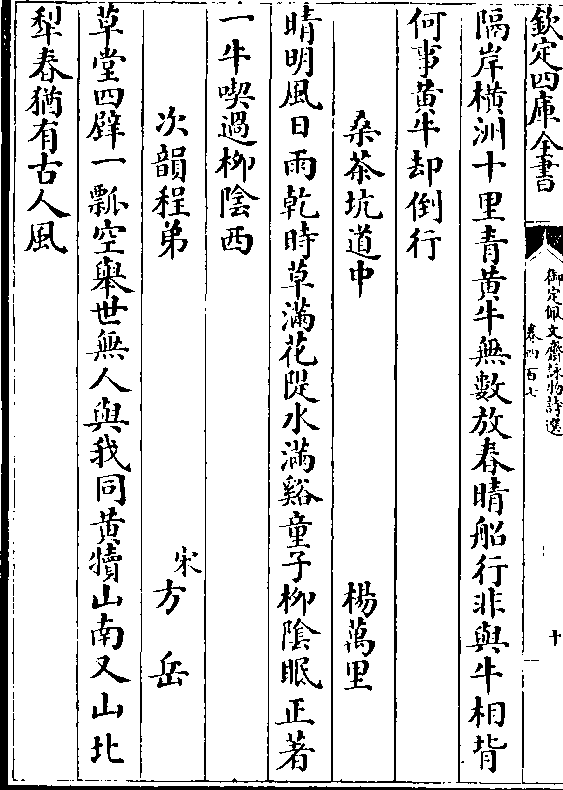 欽定四庫全書
御定佩文齋詠物詩選
卷四百七
十
隔岸横洲十里青黄牛無數放春晴船行非與牛相背
何事黄牛却倒行
桑茶坑道中
楊萬里
晴明風日雨乾時草滿花隄水滿谿童子柳陰眠正著
一牛喫過柳陰西
次韻程弟
宋方岳
草堂四壁一瓢空舉世無人與我同黄犢山南又山北
犁春猶有古人風